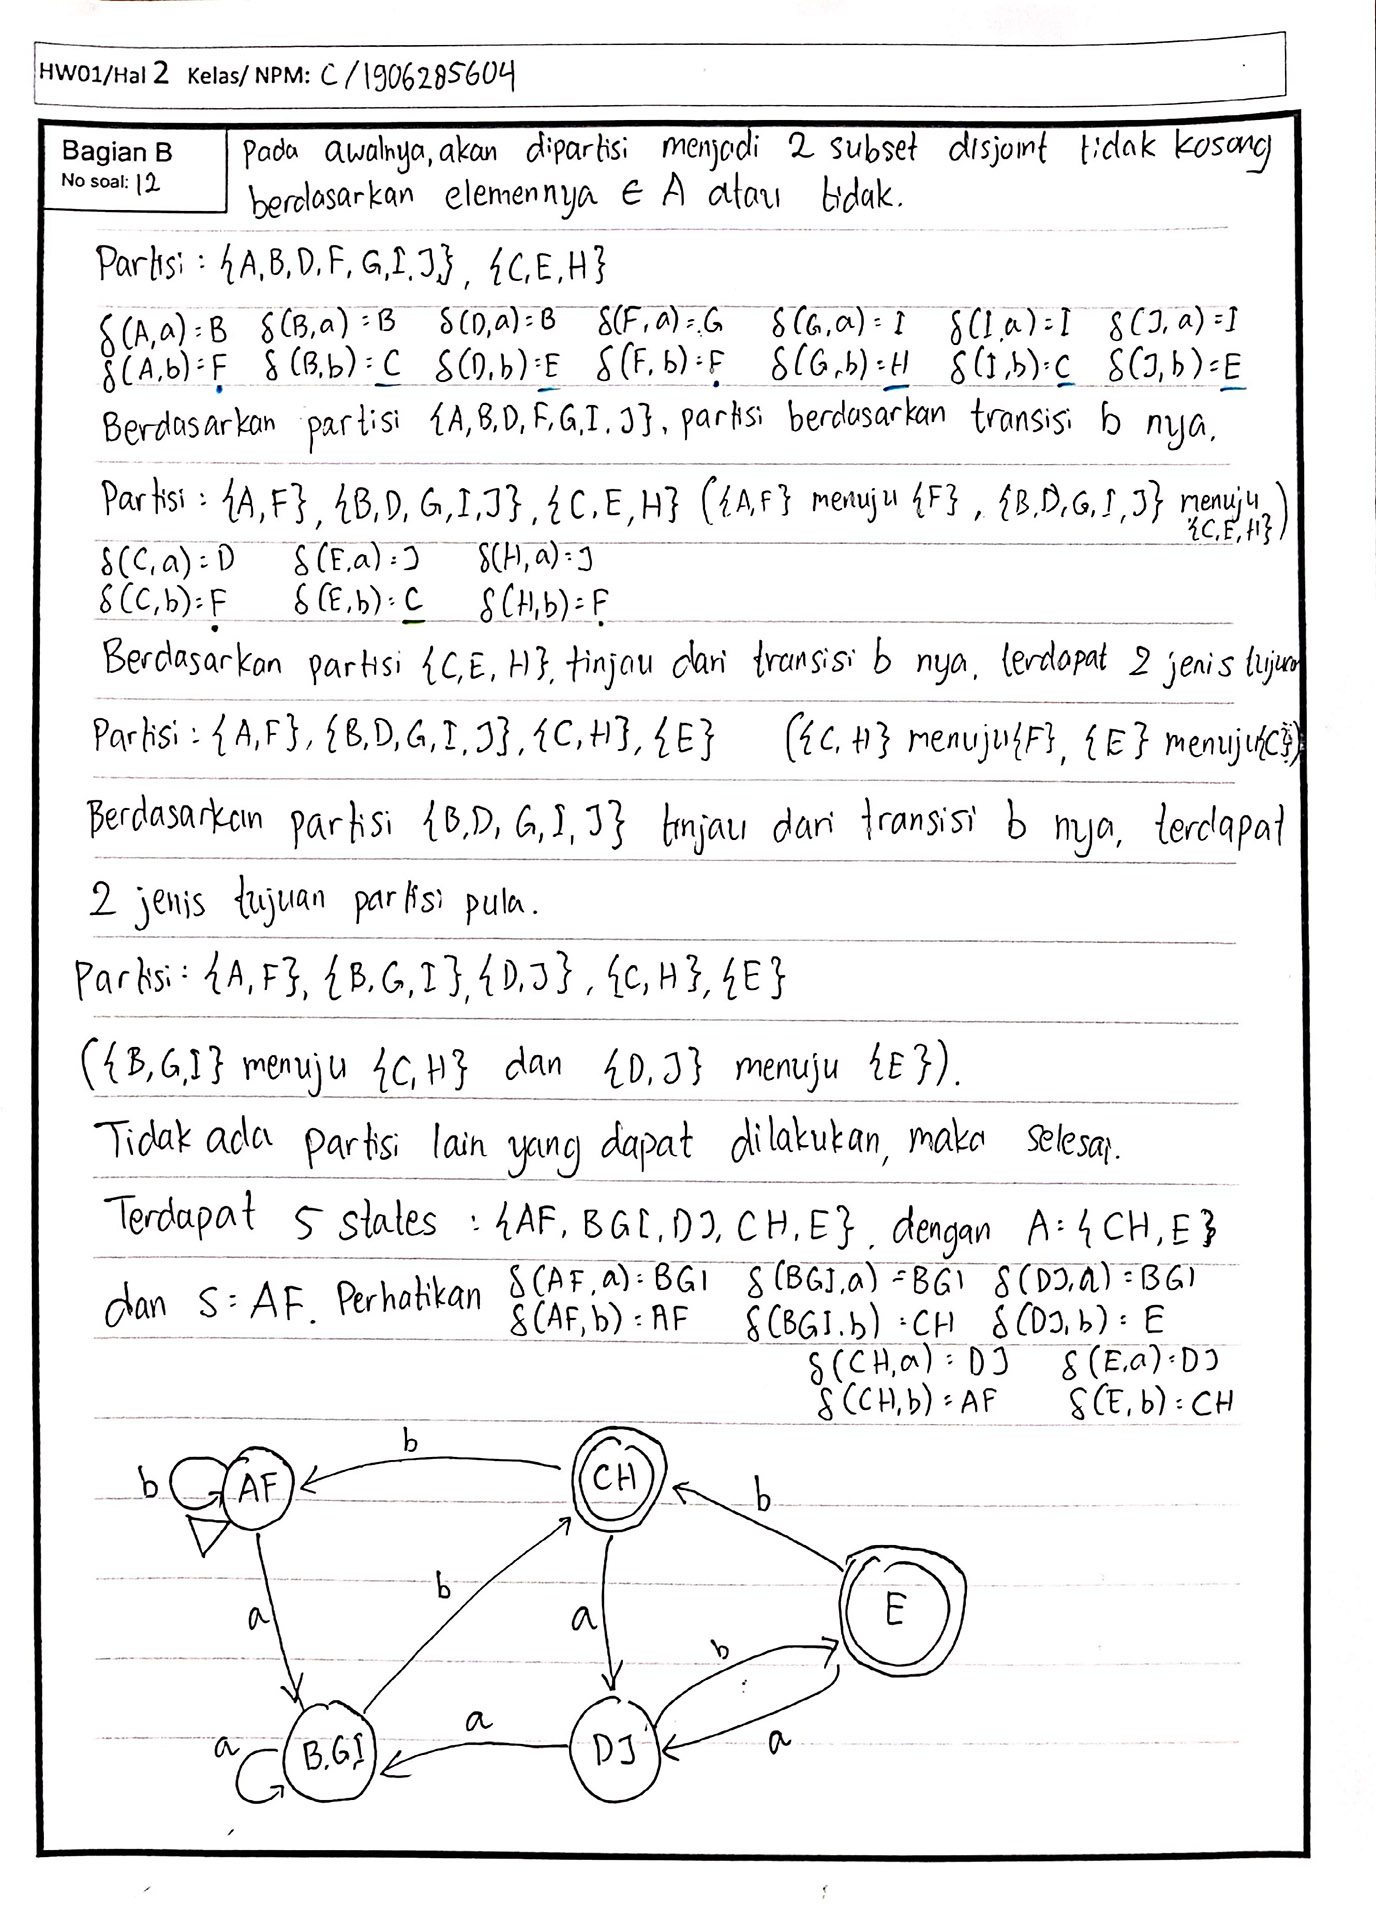 HW01/Hal 2 Kelas/ NPM: C/1906285604
Bagian B
No soal: 12
Pada awalnya, akan dipartisi menjadi 2 subset disjoint tidak kosong
berdasarkan elemennya ∈ A atau tidak.
Partisi : {A,B,D,F,G,I,J}, {C,E,H}
δ(A,a)=B δ(B,a)=B δ(D,a)=B δ(F,a)=G δ(G,a)=I δ(I,a)=I δ(J,a)=I
δ(A,b)=F δ(B,b)=C δ(D,b)=E δ(F,b)=F δ(G,b)=H δ(I,b)=C δ(J,b)=E
Berdasarkan partisi {A,B,D,F,G,I,J}, partisi berdasarkan transisi b nya.
Partisi : {A,F}, {B,D,G,I,J}, {C,E,H} ({A,F} menuju {F}, {B,D,G,I,J} menuju
{C,E,H})
δ(C,a)=D δ(E,a)=J δ(H,a)=J
δ(C,b)=F δ(E,b)=C δ(H,b)=F
Berdasarkan partisi {C,E,H}, tinjau dari transisi b nya, terdapat 2 jenis tujuan
Partisi : {A,F}, {B,D,G,I,J}, {C,H}, {E} ({C,H} menuju {F}, {E} menuju {C})
Berdasarkan partisi {B,D,G,I,J} tinjau dari transisi b nya, terdapat
2 jenis tujuan partisi pula.
Partisi : {A,F}, {B,G,I}, {D,J}, {C,H}, {E}
({B,G,I} menuju {C,H} dan {D,J} menuju {E}).
Tidak ada partisi lain yang dapat dilakukan, maka selesai.
Terdapat 5 states : {AF, BGI, DJ, CH, E}, dengan A = {CH, E}
dan S = AF. Perhatikan δ(AF,a)=BGI δ(BGI,a)=BGI δ(DJ,a)=BGI
δ(AF,b)=AF δ(BGI,b)=CH δ(DJ,b)=E
δ(CH,a)=DJ δ(E,a)=DJ
δ(CH,b)=AF δ(E,b)=CH
b
b AF CH
b
E
b
a a
b
a
a B,GI DJ
a